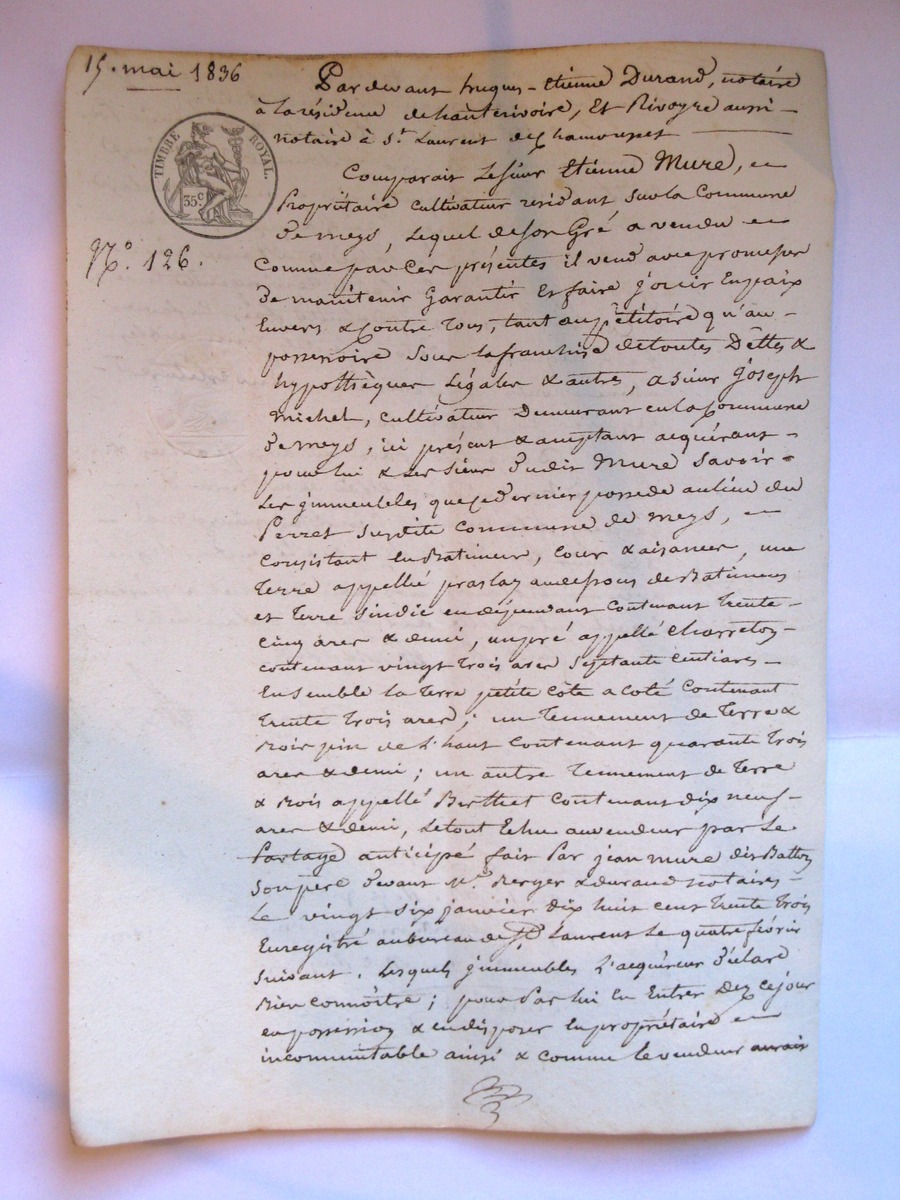 15. mai 1836
Pardevant hugues-Etienne Durand, notaire
à la résidence de hauterivoire, Et Rivoyre aussi
notaire à St. Laurent de Chamousset
TIMBRE ROYAL.
35c
Comparait Le Sieur Etienne Mure,
Propriétaire cultivateur residant sur la Commune
De meys, Lequel de son Gré a vendu
N.o 126.
Comme par Ces présentes il vend avec promesse
De maintenir Garantir Et faire jouir En paix
Envers & Contre Tous, tant au pétitoire qu'au
possessoire Sous la franchise de toutes Dêttes &
hypothèques Légales & autres, a Sieur Joseph
Michel, cultivateur Demeurant en la Commune
De meys, ici présent & acceptant acquérant
pour lui & Les Sieur Dudit Mure Savoir
Les jmmeubles que ce Dernier possede au lieu du
Perret Susdite Commune de meys,
Consistant En Batimens, Cour & aisances, une
Terre appellée praslay au dessous des Batimens
et Terre Sindic en dépendant contenant Trente
Cinq ares & demi, un pré appellé Charretoy
contenant vingt Trois ares Septante Centiares
Ensemble la Terre petite Côte a coté Contenant
Trente Trois ares; un Tennement de Terre &
Bois pin de L'haut Contenant quarante Trois
ares & demi; un autre Tennement de Terre
& Bois appellé Berthet Contenant dix neuf
ares & demi, Le tout Echu au vendeur par Le
Partage anticipé fait Par jean mure dit Batton
Son père Devant M.e Berger & durand notaires
Le vingt Six janvier Dix huit cent Trente Trois
Enregistré au bureau de St. Laurent Le quatre février
Suivant. Lesquels jmmeubles L'acquéreur Déclare
Bien connoître; pour Par lui En Entrer Dez Ce jour
en possession & en disposer En propriétaire
incommutable ainsi & comme le vendeur aurait